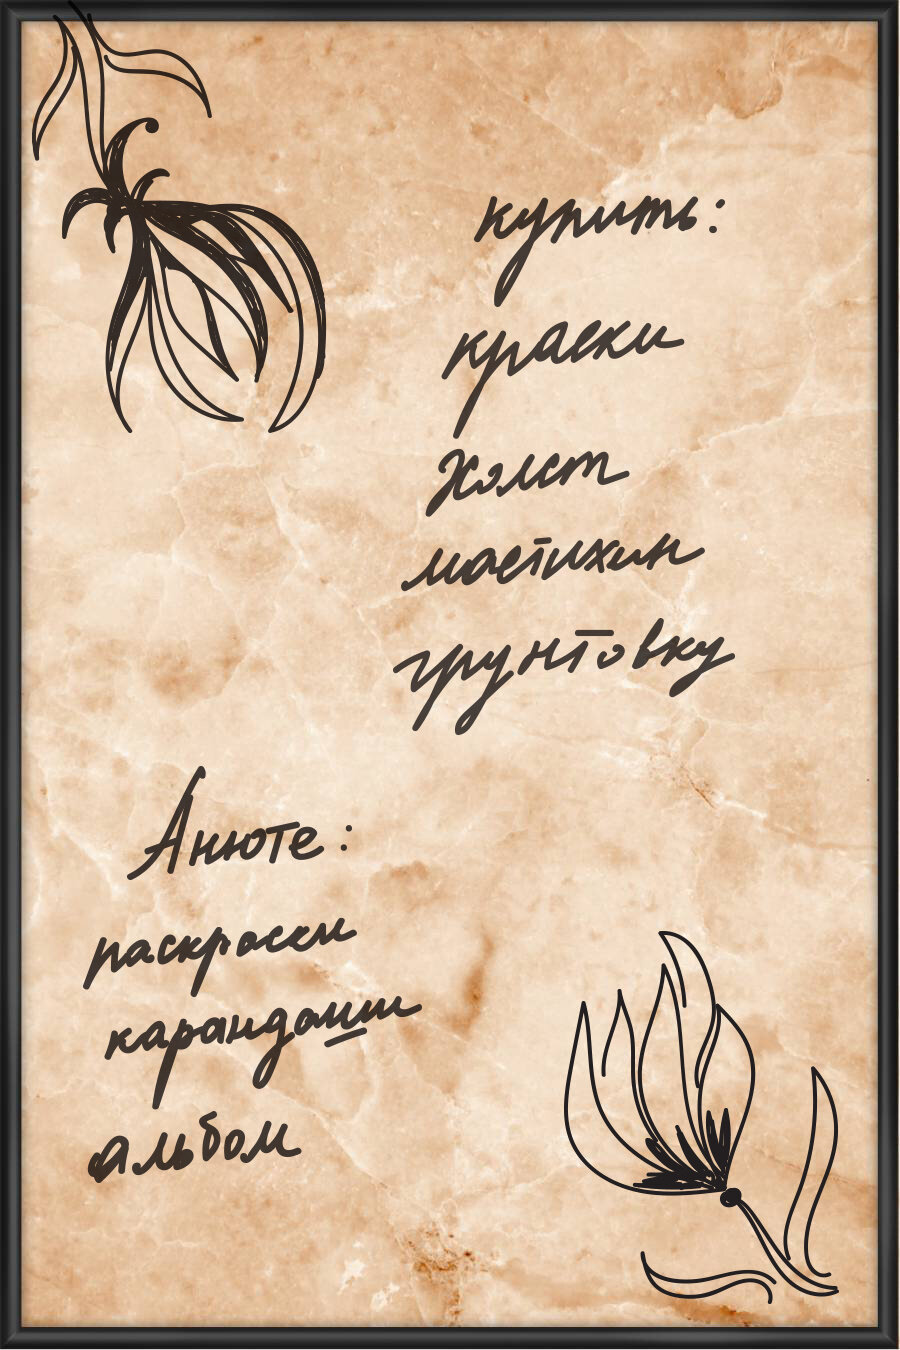 купить:
краски
холст
мастихин
грунтовку
Анюте:
раскраски
карандаши
альбом